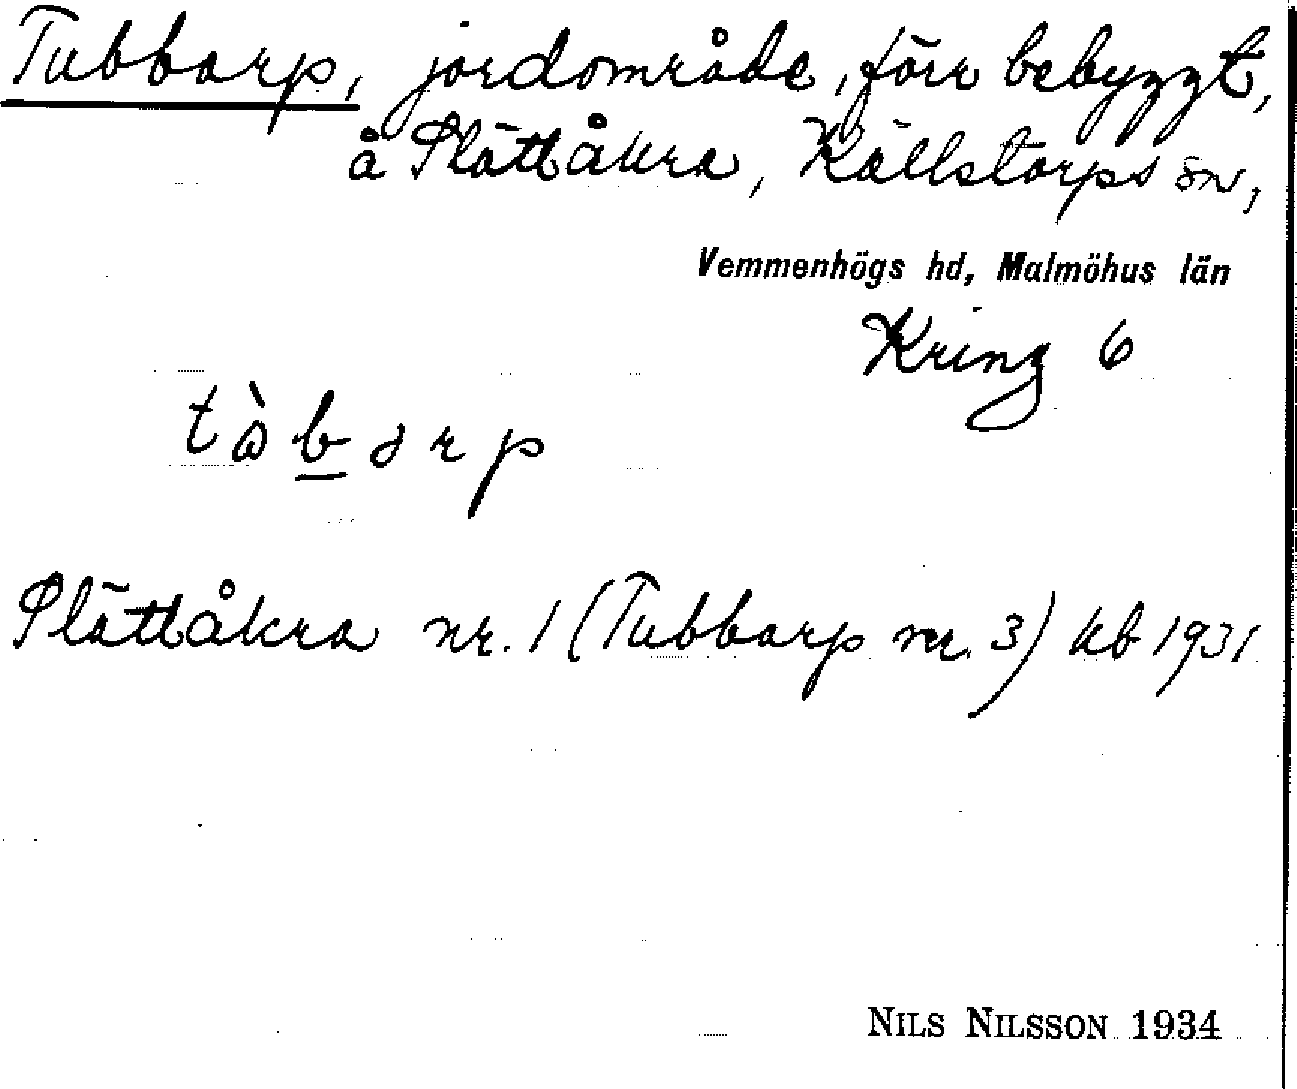 Tubbarp, jordområde, förr bebyggt,
å Slättåkra, Källstorps sn,
Vemmenhögs hd, Malmöhus län
Kring 6
tàb̲arp
Slättåkra nr. 1 (Tubbarp nr. 3) kb 1931
NILS NILSSON 1934